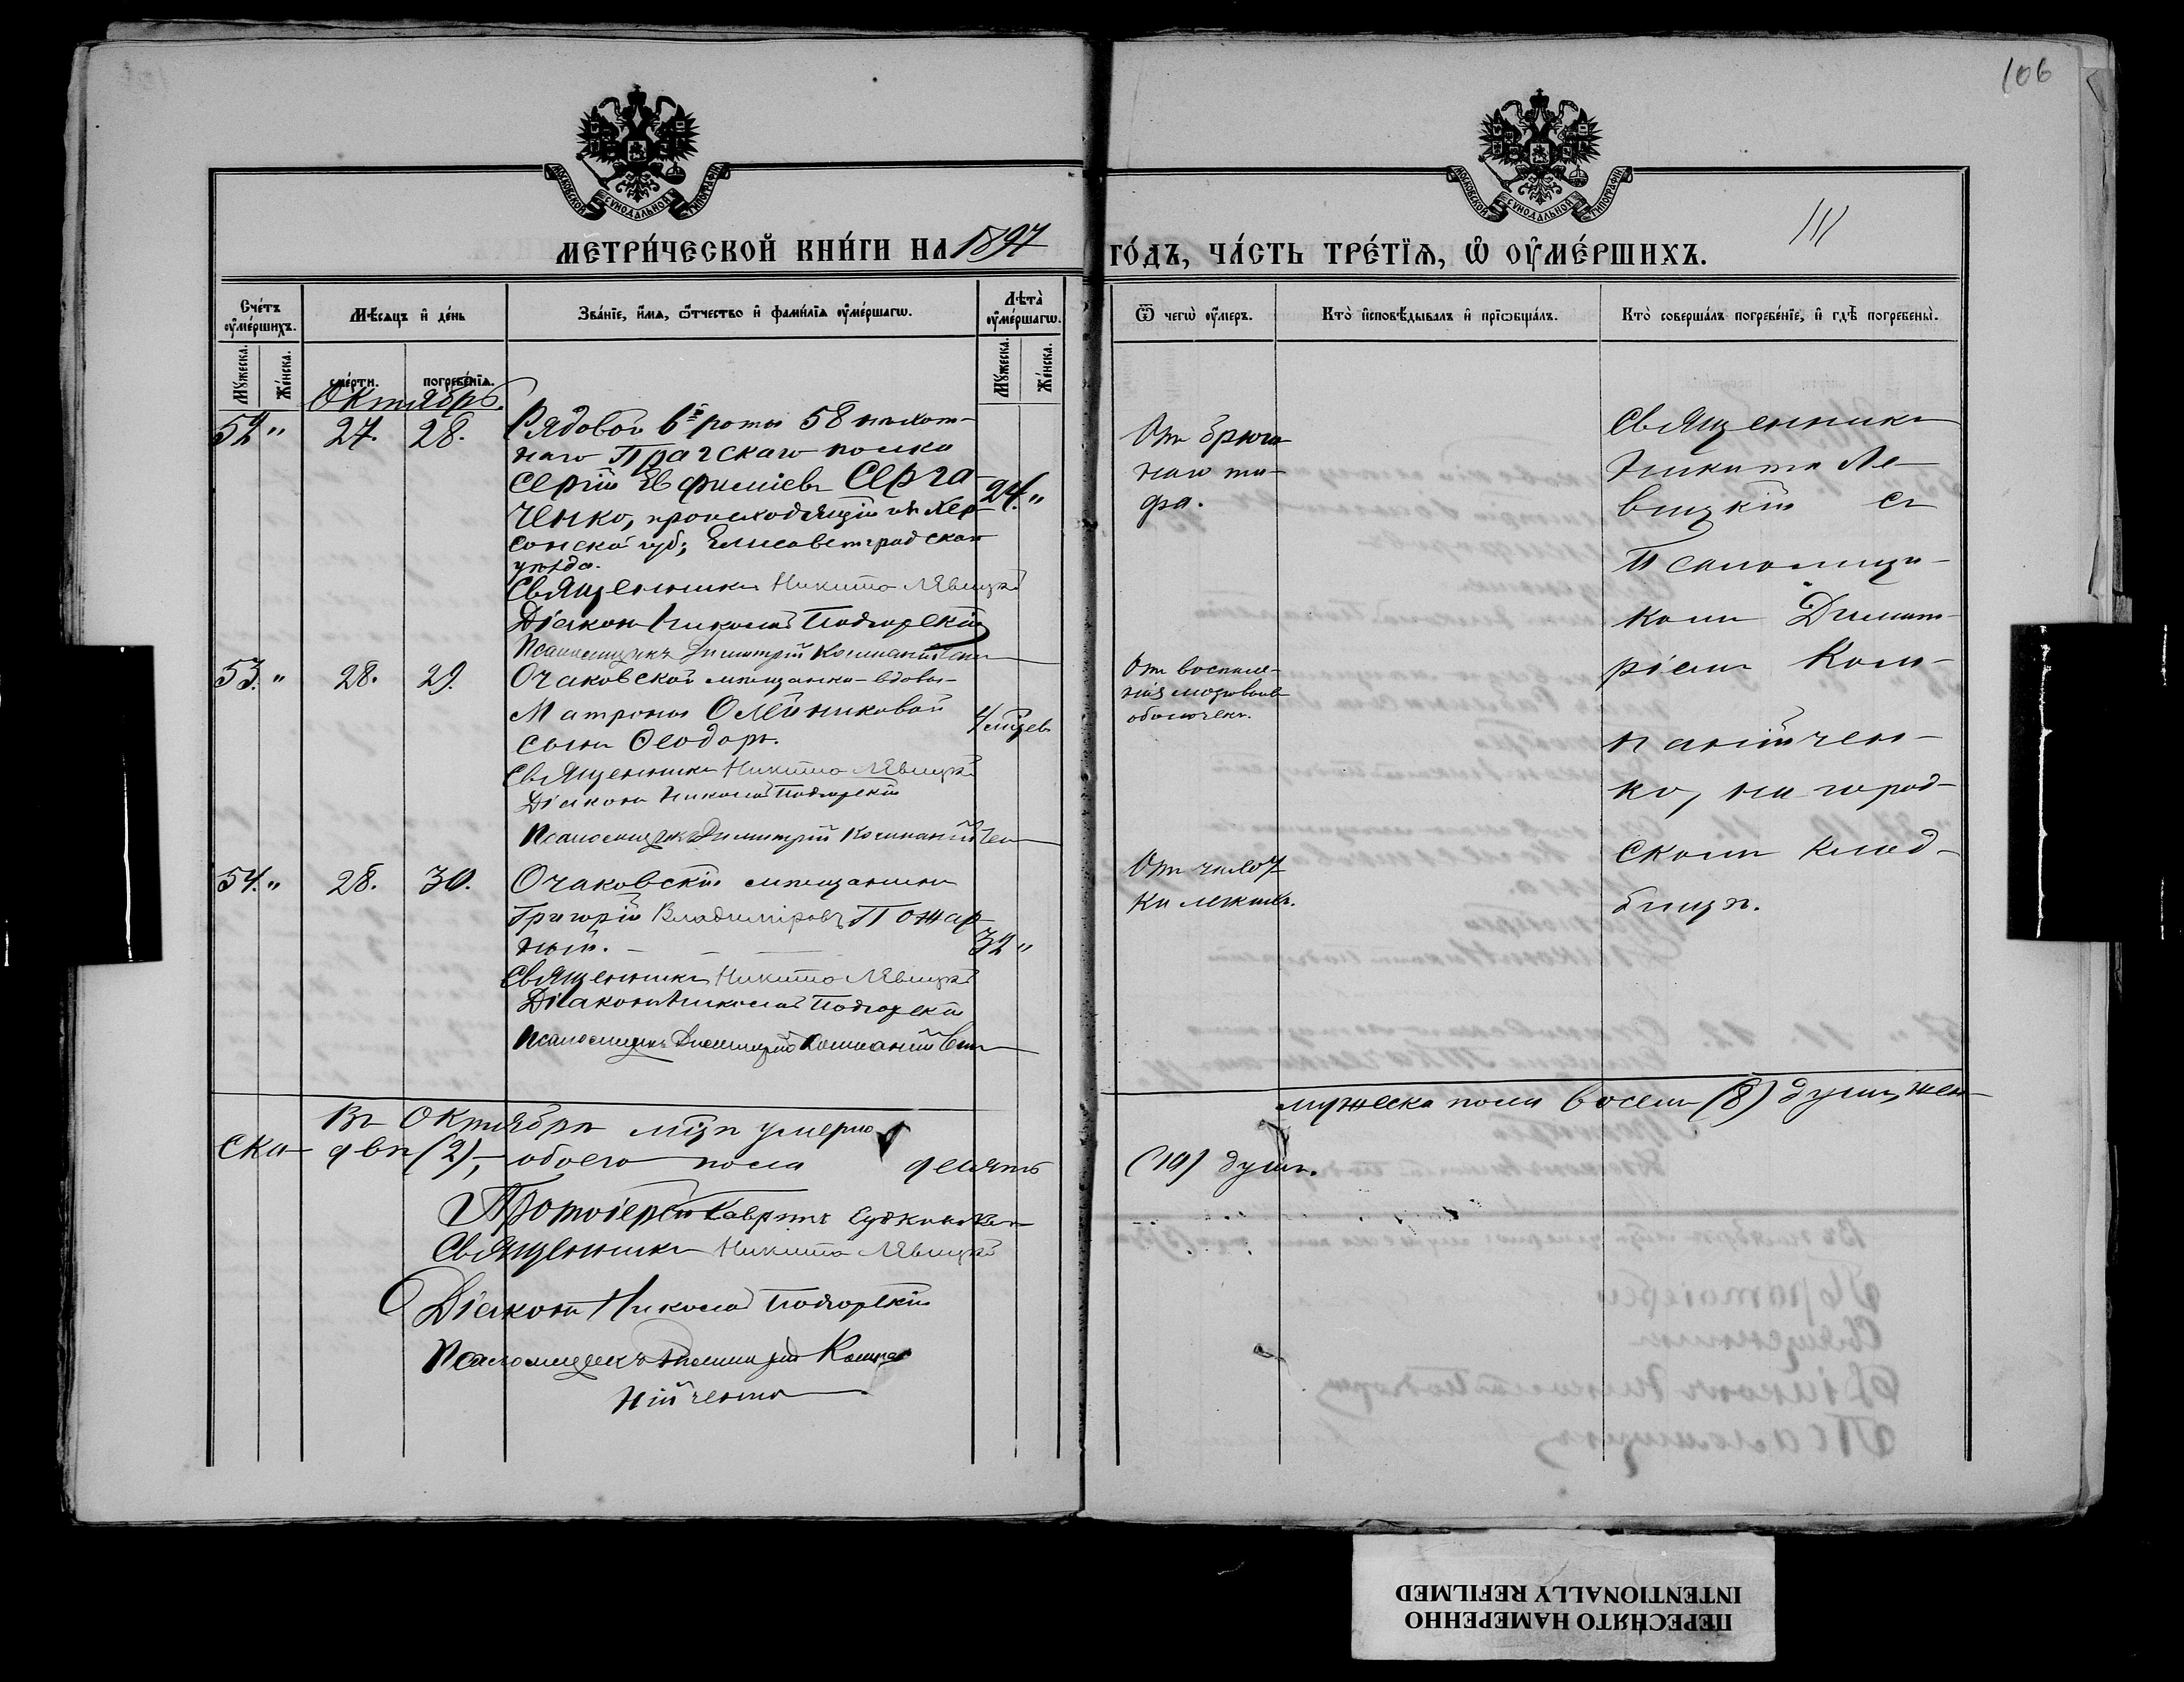 106
111
МОСКОВСКОЙ СѴНОДАЛЬНОЙ ТИПОГРАФІИ
МОСКОВСКОЙ СѴНОДАЛЬНОЙ ТИПОГРАФІИ
МЕТРИ́ЧЕСКОЙ КНИ́ГИ НА 1897 ГО́ДЪ, ЧА́СТЬ ТРЕ́ТЇѦ, Ѡ҆ ОУ҆МЕ́РШИХЪ.
Сче́тъ оу҆ме́ршихъ.
Мꙋ́жеска. Же́нска.
Мѣ́сѧцъ и҆ де́нь
сме́рти. погребе́нїѧ.
Зва́нїе, и҆́мѧ, ѻ҆́тчество и҆ фами́лїѧ оу҆ме́ршагѡ.
Лѣ́та оу҆ме́ршагѡ.
Мꙋ́жеска. Же́нска.
Ѿ чегѡ̀ оу҆́меръ.
Кто̀ и҆сповѣ́дывалъ и҆ прїѡбща́лъ.
Кто̀ соверша́лъ погребе́нїе, и҆ гдѣ̀ погребены̀.
Октябрь.
52 " 27. 28.
Рядовой 6й роты 58 пѣхот-
наго Прагскаго полка
Сергій Евфиміевъ Серга-
ченко, происходящій изъ Хер-
сонской губ., Елисаветградскаго
уѣзда.
24. "
Священникъ Никита Левицкій
Діаконъ Николай Подгорскій
Псаломщикъ Димитрій Компанійченко
От брюш-
наго ти-
фа.
Священникъ
Никита Ле-
вицкій съ
Псаломщи-
комъ Димит-
ріемъ Ком-
панійчен-
ко, на город-
скомъ клад-
бищѣ.
53. " 28. 29.
Очаковской мѣщанки-вдовы-
Матроны Олейниковой
сынъ Ѳеодоръ.
4 мѣсяцев
Священникъ Никита Левицкій
Діаконъ Николай Подгорскій
Псаломщикъ Димитрій Компанійченко
От воспале-
нія мозговыхъ
оболочекъ.
54. " 28. 30.
Очаковскій мѣщанинъ
Григорій Владиміровъ Пожар-
ный.
32 "
Священникъ Никита Левицкій
Діаконъ Николай Подгорскій
Псаломщикъ Димитрій Компанійченко
От чахот-
ки легкихъ.
Въ Октябрѣ мѣсяцѣ умерло мужеска пола восемь (8) душъ, жен-
ска - двѣ (2), - обоего пола десять (10) душъ.
Протоіерей
Священникъ Никита Левицкій
Діаконъ Николай Подгорскій
Псаломщикъ Димитрій Компа-
нійченко
ПЕРЕСНЯТО НАМЕРЕННО
INTENTIONALLY REFILMED